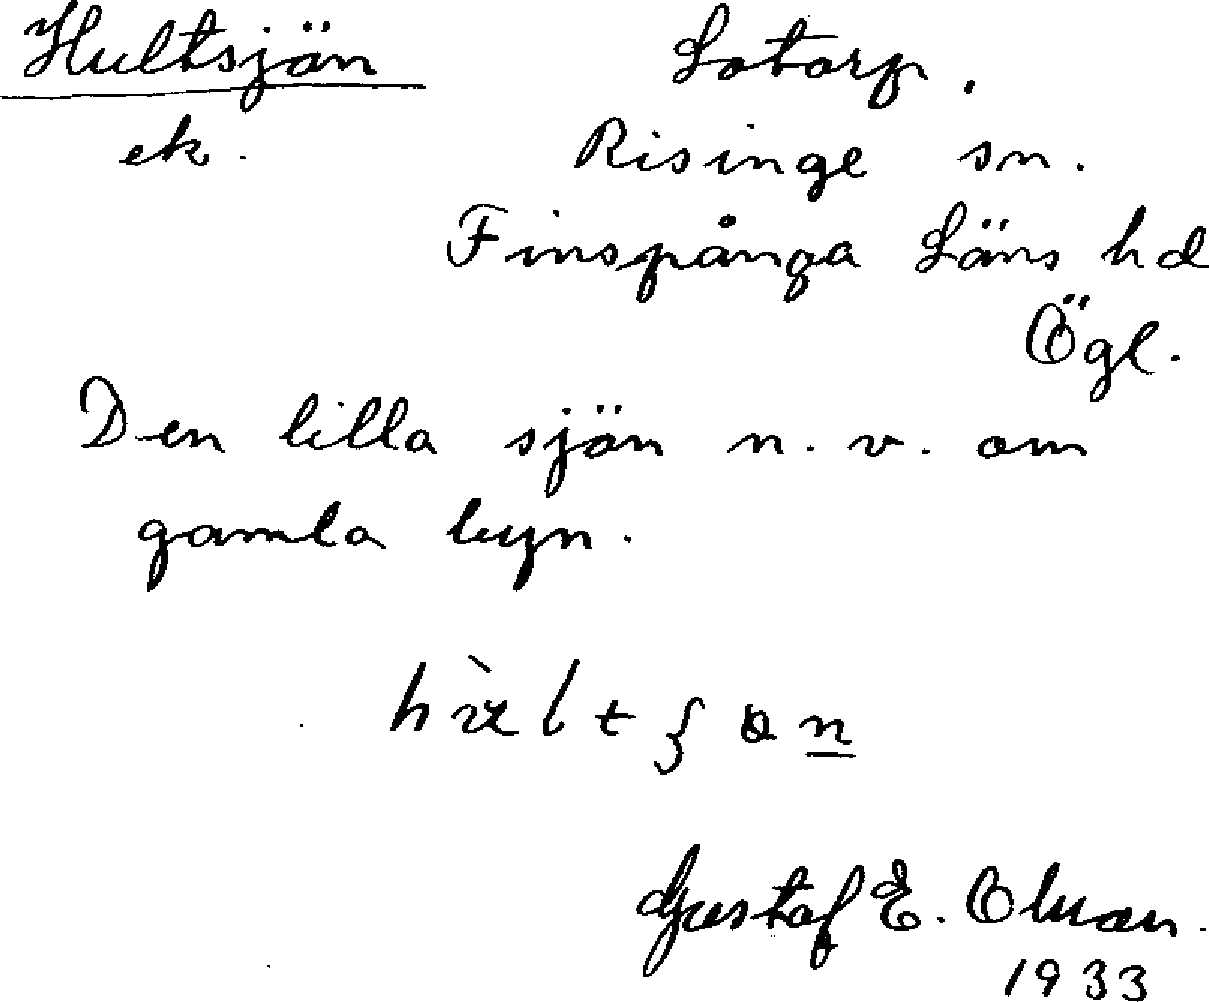 Hultsjön Lotorp.
ek. Risinge sn.
Finspånga Läns hd
Ögl.
Den lilla sjön n. v. om
gamla byn.
Gustaf E.
1933